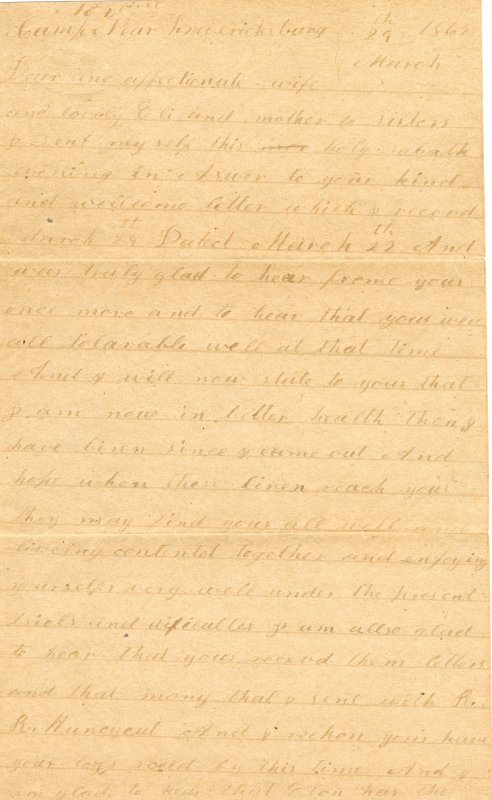 Camp Near Fredericksburg
29th 186
March
Dear and affectionate wife
and lovely Eli and mother & sisters
I seat myself this holy sabath
evening in Answer to your kind
and wellcome letter which I receivd
March 24th Dated March 22th And
was truly glad to hear frome yous
once more and to hear that yous were
all tolarable well at that time
And I will now state to yous that
I am now in better health then I
have binn since I came out And
hope when these lines reach yous
they may find yous all well and
liveing contentet together and enjoying
yourselfs very well under the present
trials and dificulties I am allso glad
to hear that yous receivd them letters
and that mony that I sent with R.
R. Huneycut And I reckon yous have
your logs by this time And I
am glad to hear that has the